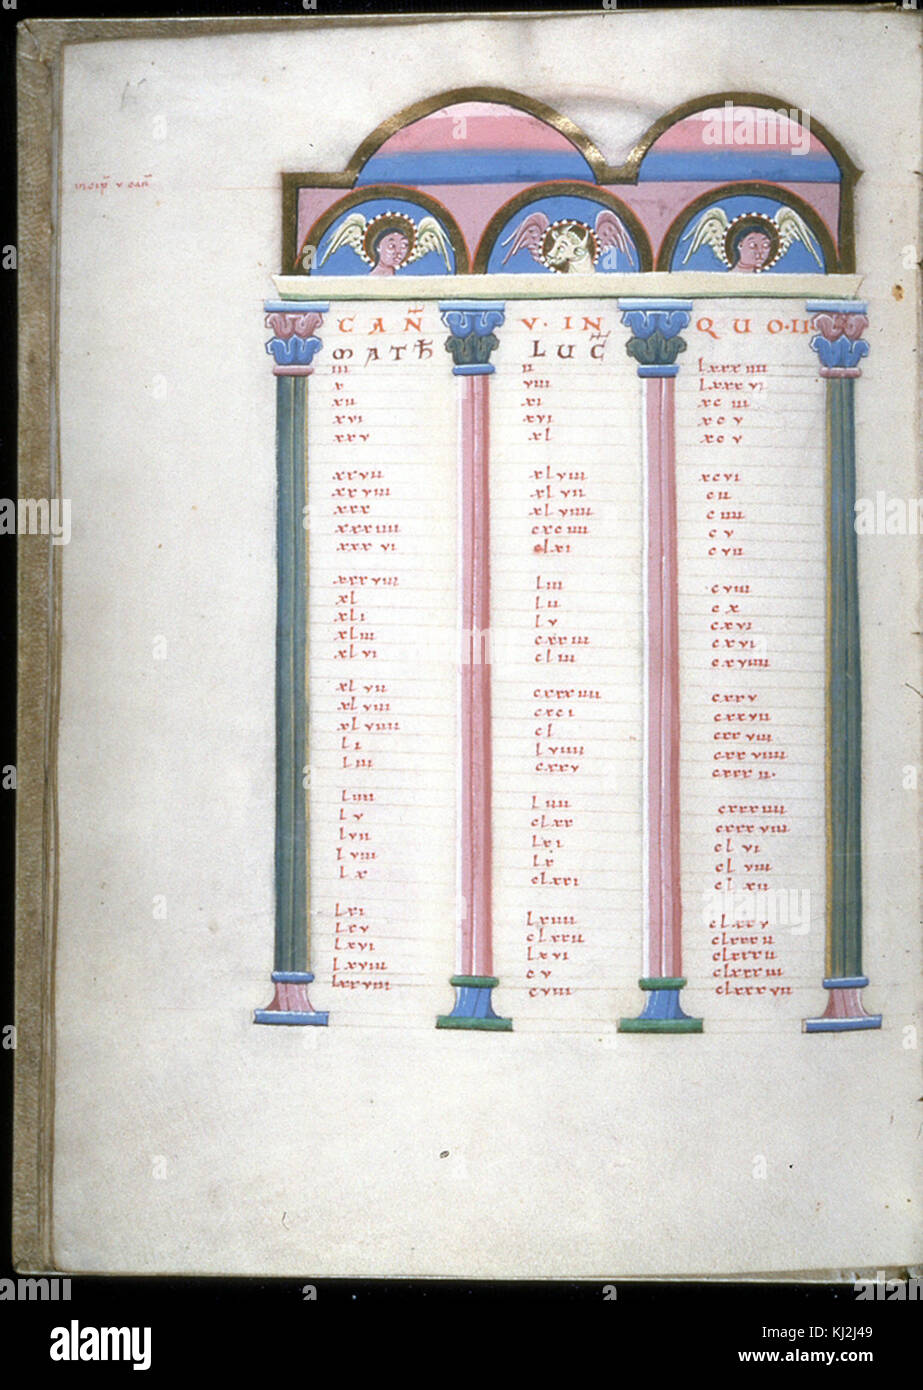 incip v can
CAN V · IN QUO · II
MATH LUC
iii ii lxxxiiii
x viii lxxxvi
xii xi xciii
xvi xvi xcv
xxv xl xcv
xxvii xlviii xcvi
xxviii xlvii cii
xxx xlviiii ciiii
xxxiiii cxciiii cv
xxxvi clxi cvii
xxxviii liii cviii
xl lii cx
xli lv cxvi
xliii cxxiiii cxvi
xlvi cliii cxviiii
xlvii cxxxiiii cxxv
xlviii cxci cxxvii
xlviiii cl cxxviii
li lviiii cxxviiii
liii cxxv cxxxii ·
liiii liiii cxxxiiii
lv clxx cxxxviii
lvii lxi clvi
lviii lx clviii
lx clxxi clxii
lxi lxiiii clxxv
lxv clxxii clxxxii
lxvi lxvi clxxxii
lxviii cv clxxxiii
lxxviii cviii clxxxvii
alamy
Image ID: KJ2J49
www.alamy.com